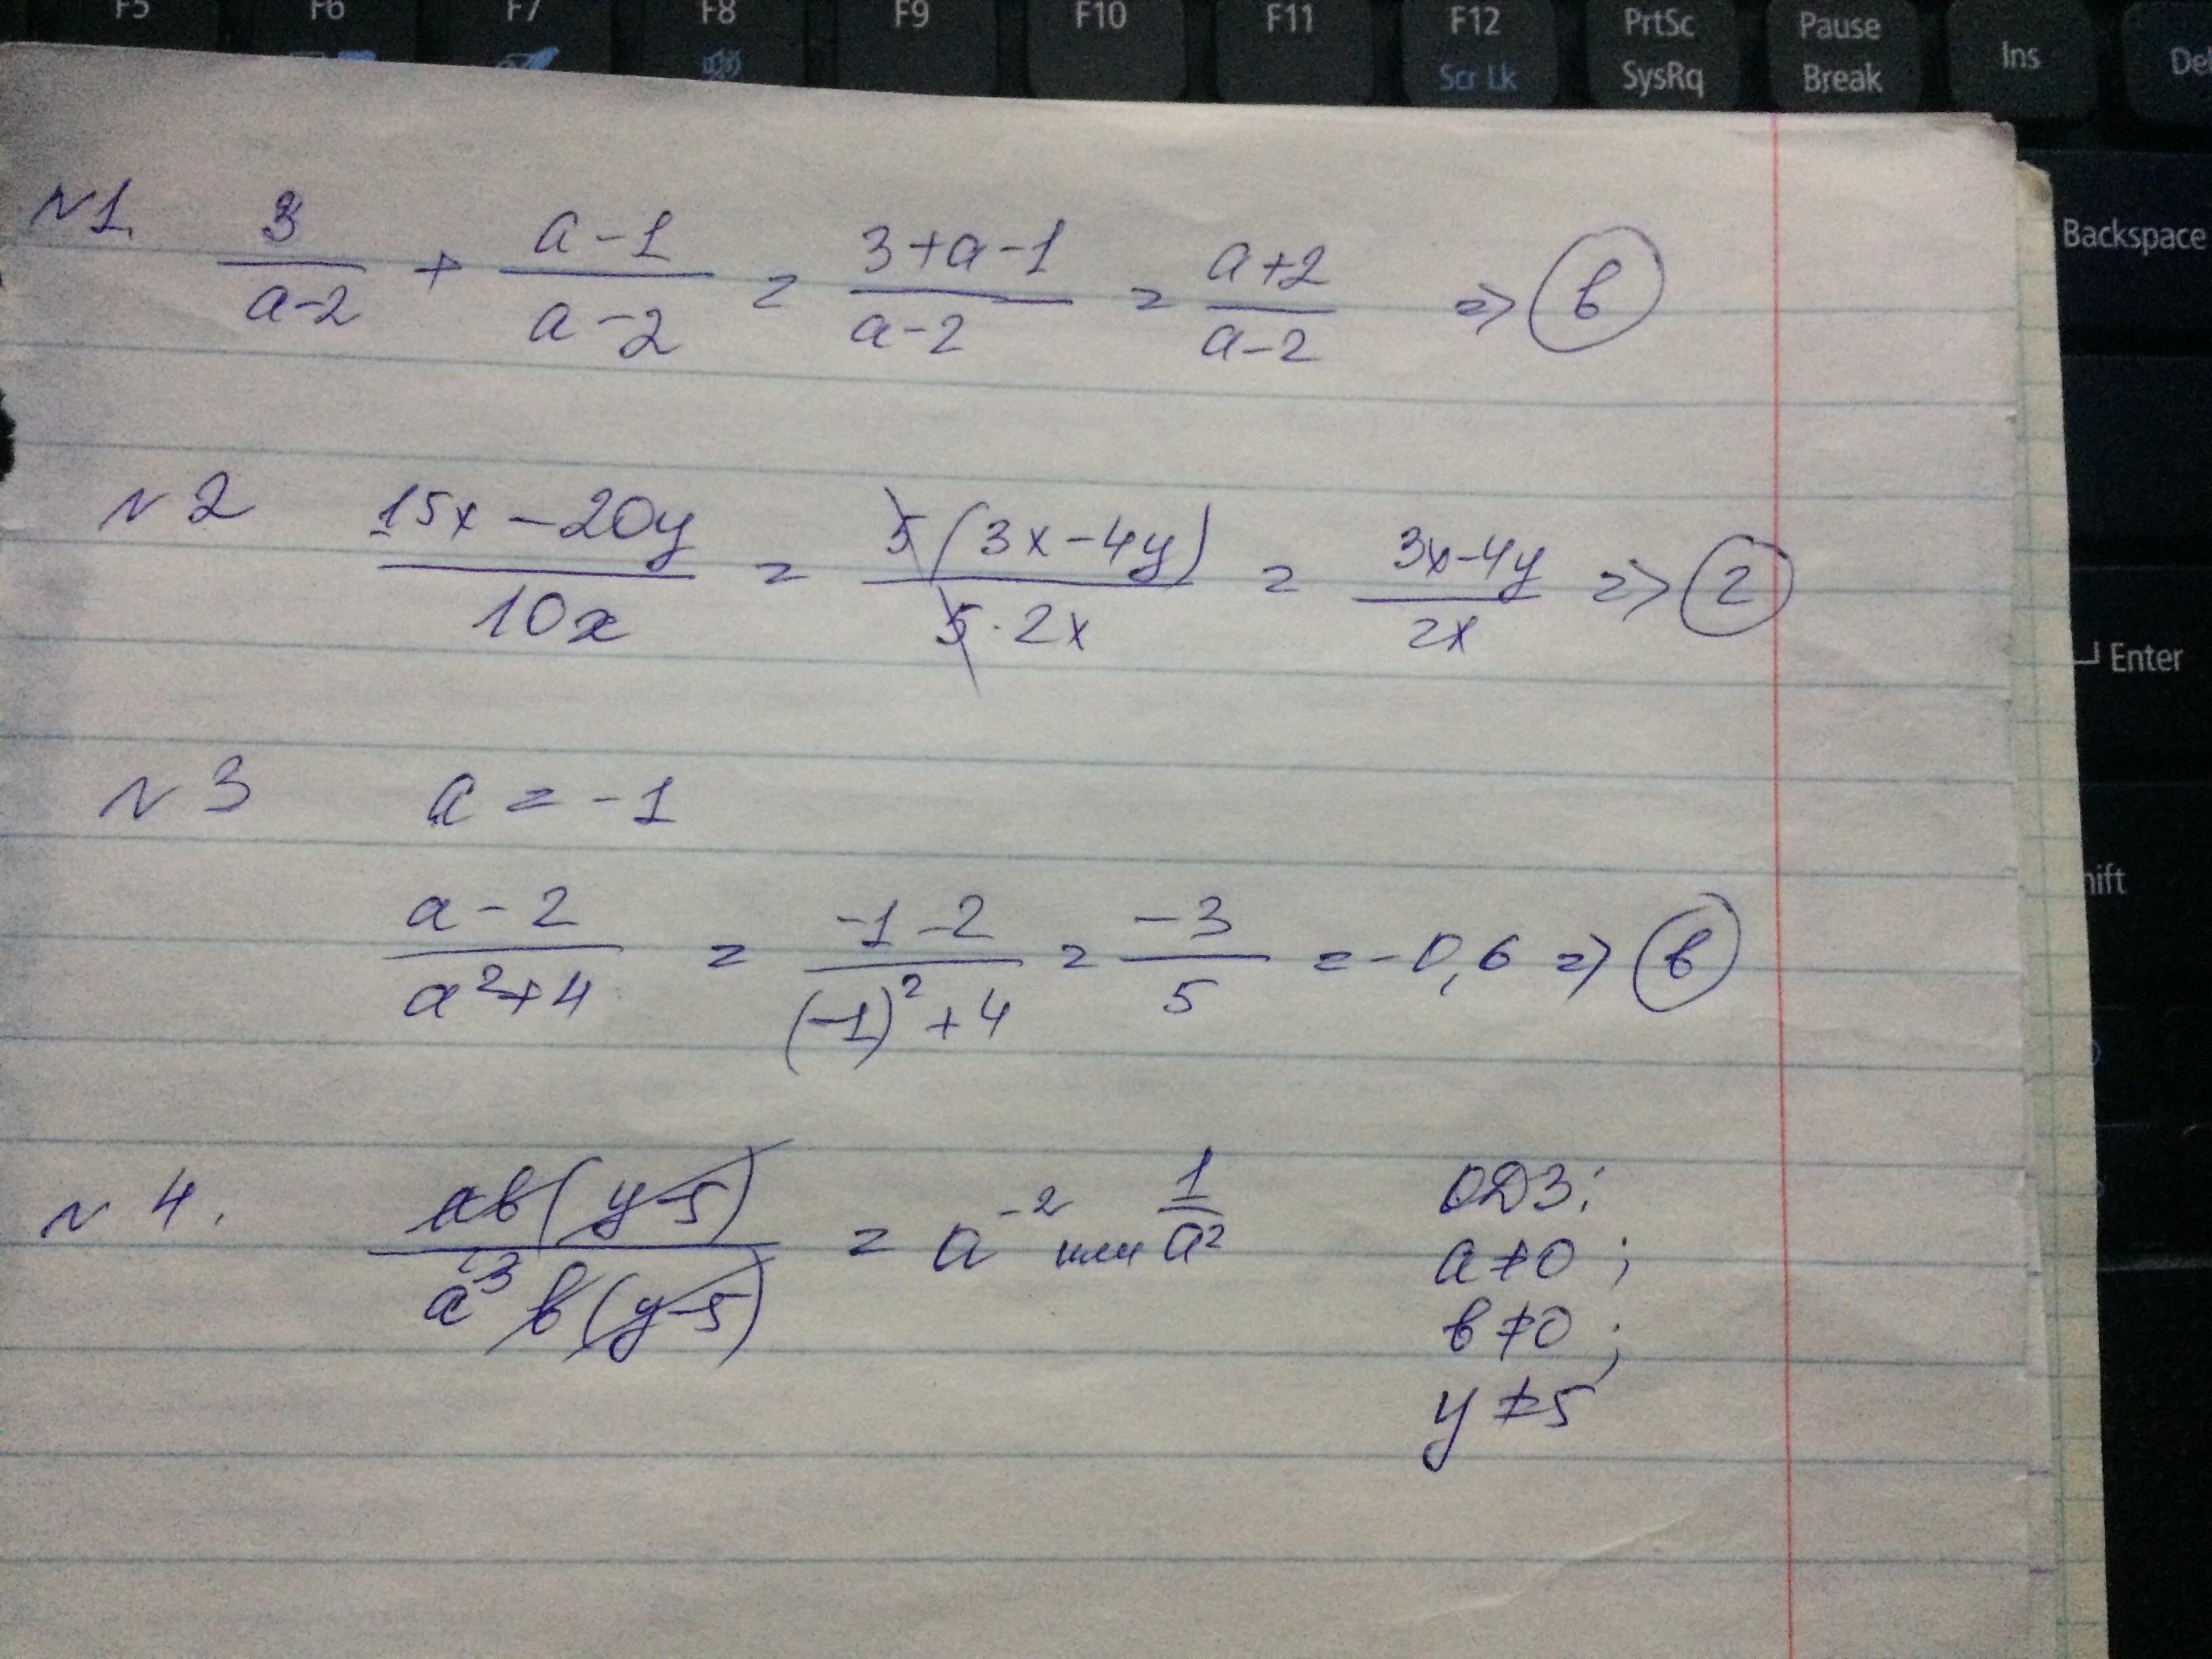 F5 F6 F7 F8 F9 F10 F11 F12 PrtSc Pause
Scr Lk SysRq Break Ins Del
Backspace
Enter
hift
№1. 3/(a-2) + (a-1)/(a-2) = (3+a-1)/(a-2) = (a+2)/(a-2) => в
№2 (15x-20y)/(10x) = 5(3x-4y)/(5·2x) = (3x-4y)/(2x) => г
№3 a = -1
(a-2)/(a²+4) = (-1-2)/((-1)²+4) = (-3)/5 = -0,6 => в
№4. ab(y-5)/(a³b(y-5)) = a⁻² или 1/a² ОДЗ:
a≠0;
b≠0;
y≠5